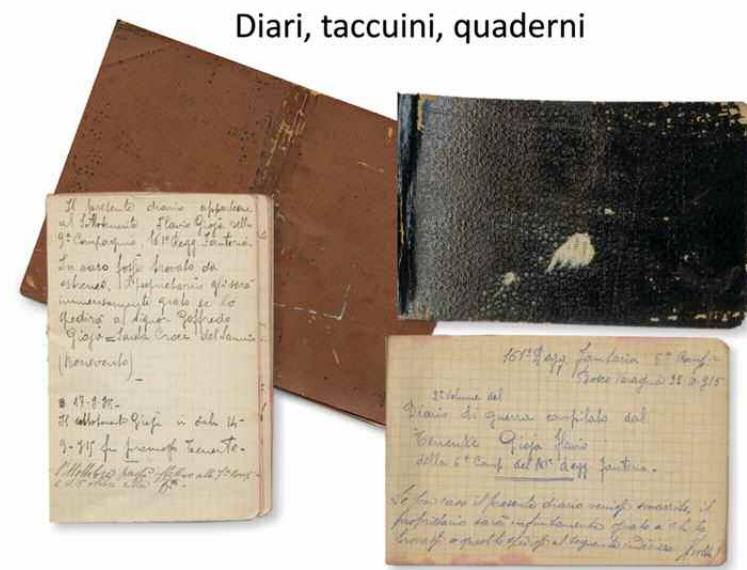 Diari, taccuini, quaderni
Il presente diario appartiene
al Sottotenente Flavio Gioja della
9ª Compagnia, 161° Regg Fanteria.
In caso fosse trovato da
estraneo, il proprietario gli sarà
immensamente grato se lo
spedirà al Signor Goffredo
Gioja = Santa Croce del Sannio
(Benevento) –
Il sottotenente Gioja in data 14-
9-915 fu promosso Tenente.
161° Regg Fanteria 6ª Comp
2° Volume del
Diario di guerra compilato dal
Tenente Gioja Flavio
della 6ª Comp del 161° Regg Fanteria.
caso il presente diario venisse smarrito, il
proprietario sarà infinitamente grato a chi lo
al seguente indirizzo